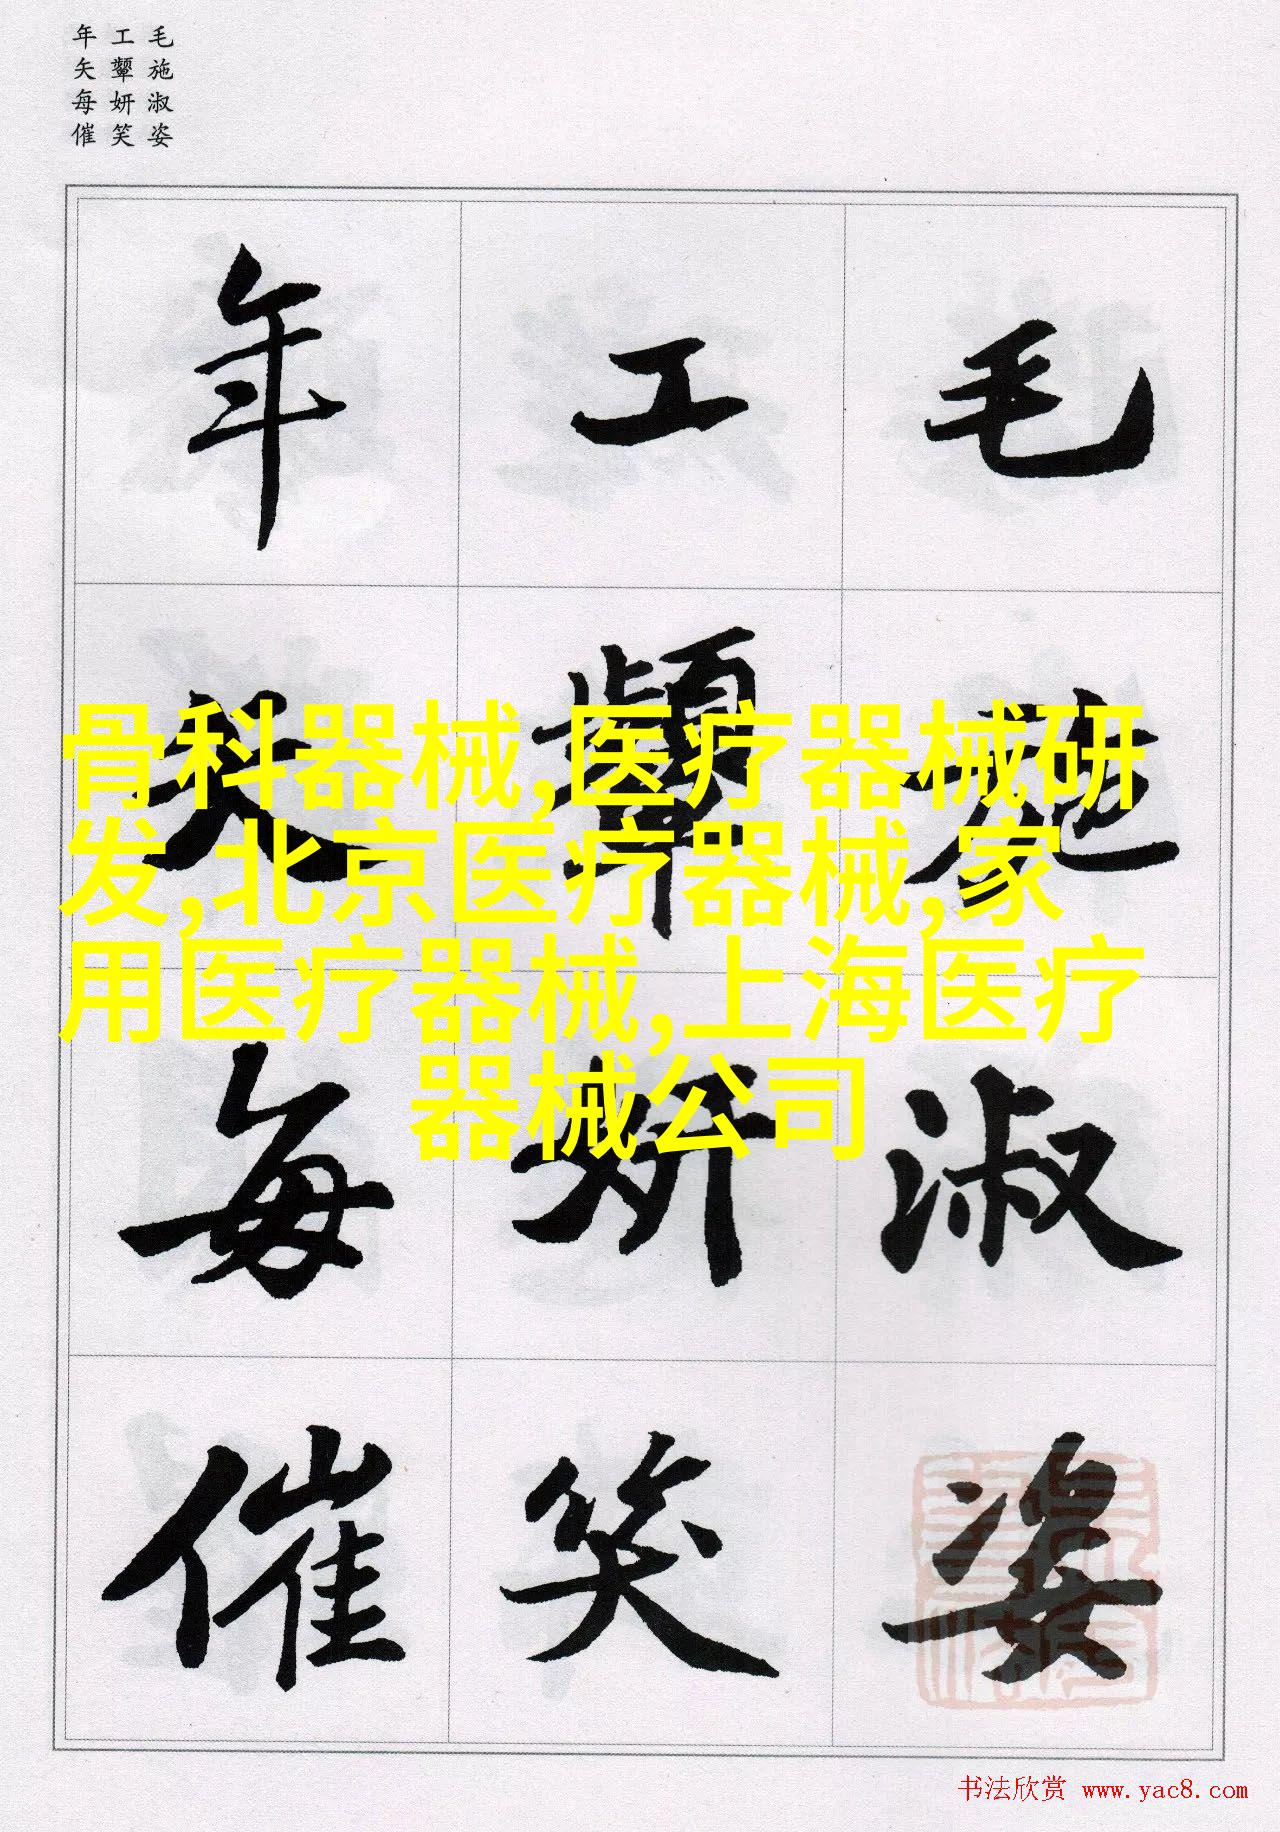 毛施淑姿
工颦妍笑
年矢每催
毛施淑姿
工颦妍笑
年矢每催
骨科器械,医疗器械研
发,北京医疗器械,家
用医疗器械,上海医疗
器械公司
书法欣赏 www.yac8.com